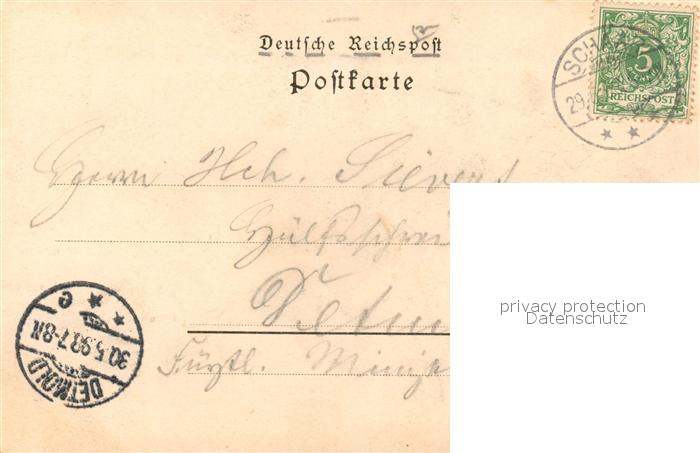 Deutsche Reichspost
Postkarte
SCH
29.
5
REICHSPOST
Herrn Hch. Sievers
Hülfsschrei
Detm
Fürstl. Minis
DETMOLD
30.5.98.7-8N
c
privacy protection
Datenschutz